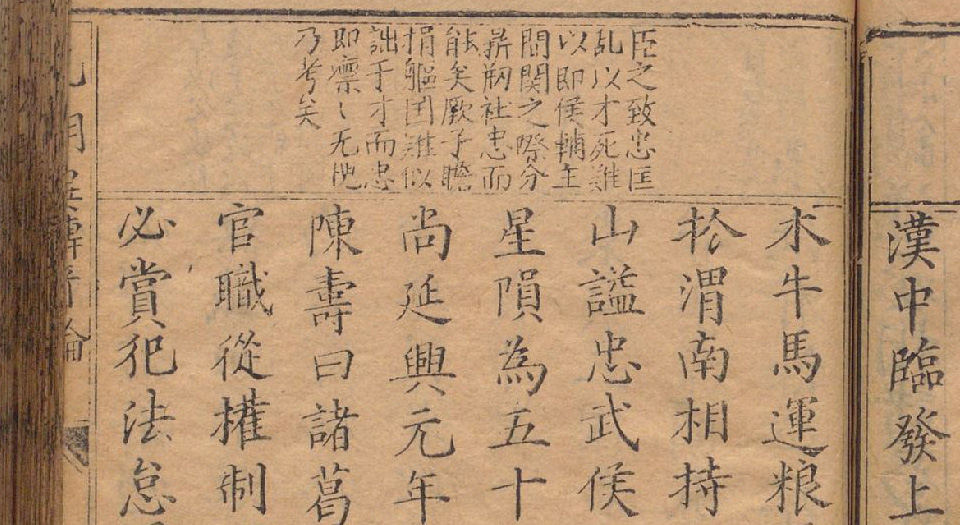 漢中臨發上
臣之致忠匡
乱以才死難
以即侯輔主
間関之際分
社忠而
能矣厥子瞻
捐軀囯難似
詘于才而忠
即凛〻无愧
乃考矣
木牛馬運粮
扵渭南相持
山謚忠武侯
星隕為五十
尚延興元年
陳壽曰諸葛
官職從權制
必賞犯法怠